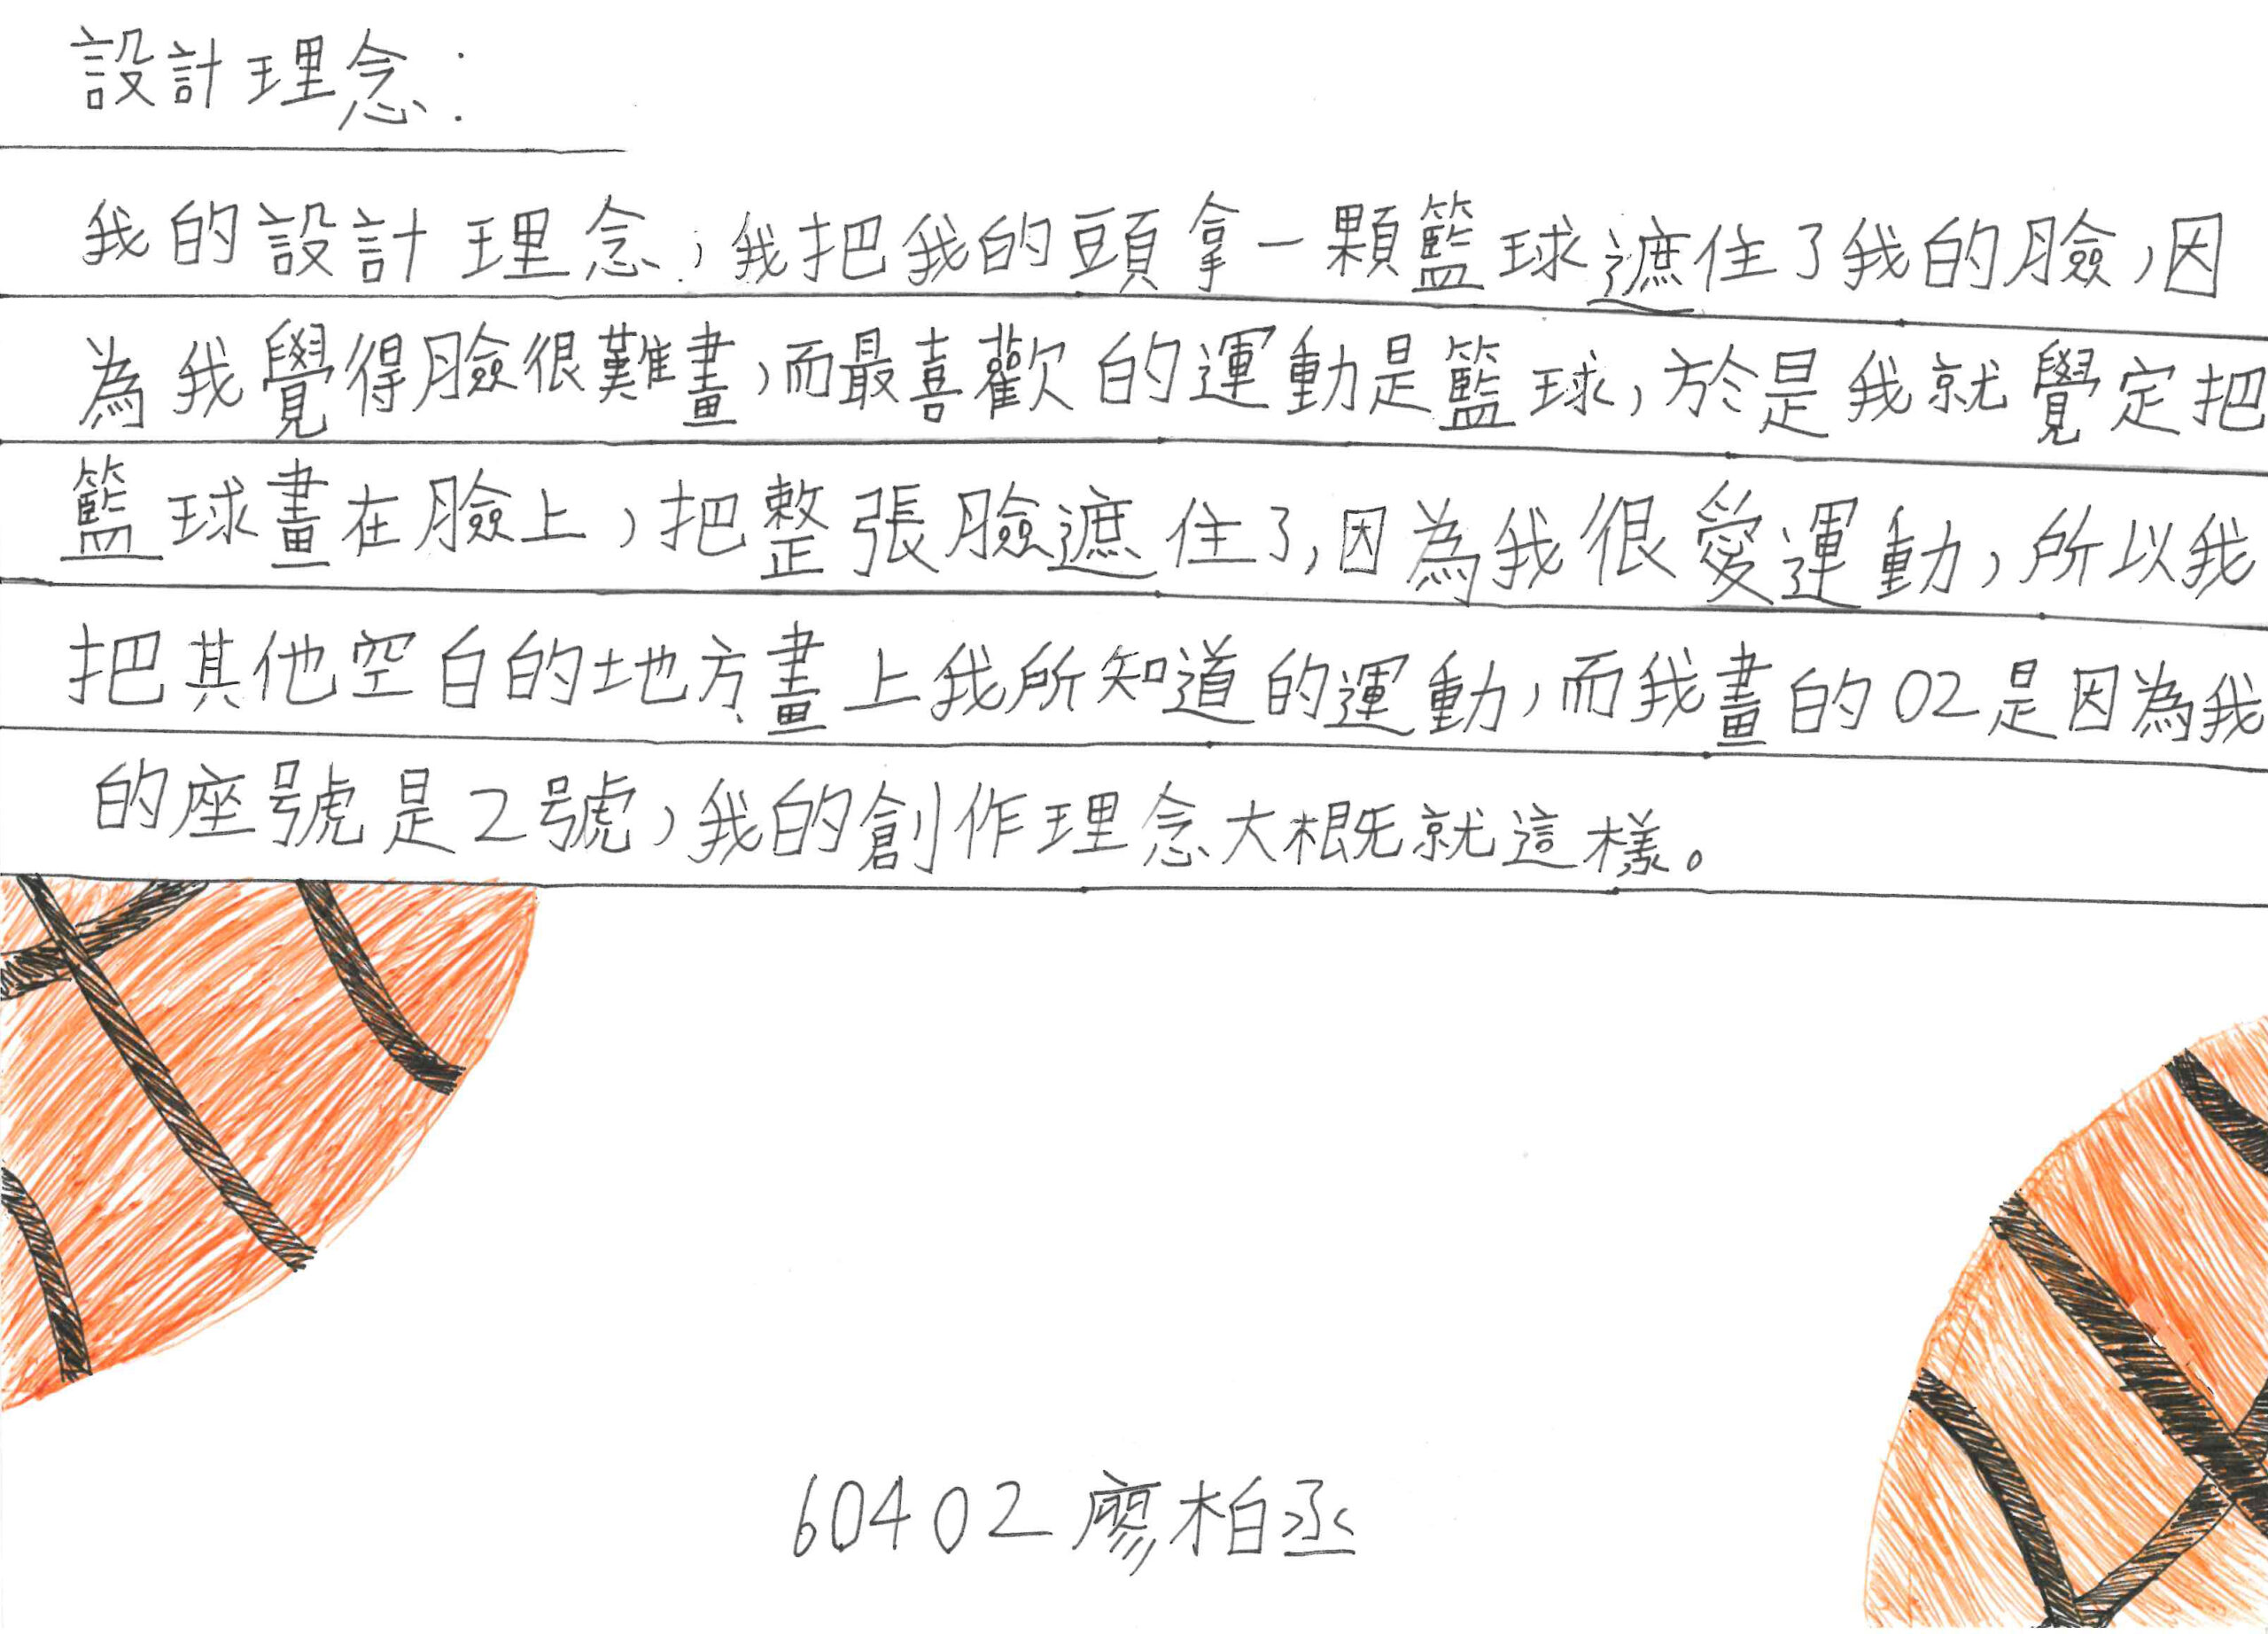 設計理念：
我的設計理念，我把我的頭拿一顆籃球遮住了我的臉，因
為我覺得臉很難畫，而最喜歡的運動是籃球，於是我就覺定把
籃球畫在臉上，把整張臉遮住了，因為我很愛運動，所以我
把其他空白的地方畫上我所知道的運動，而我畫的02是因為我
的座號是2號，我的創作理念大概就這樣。
60402廖柏丞